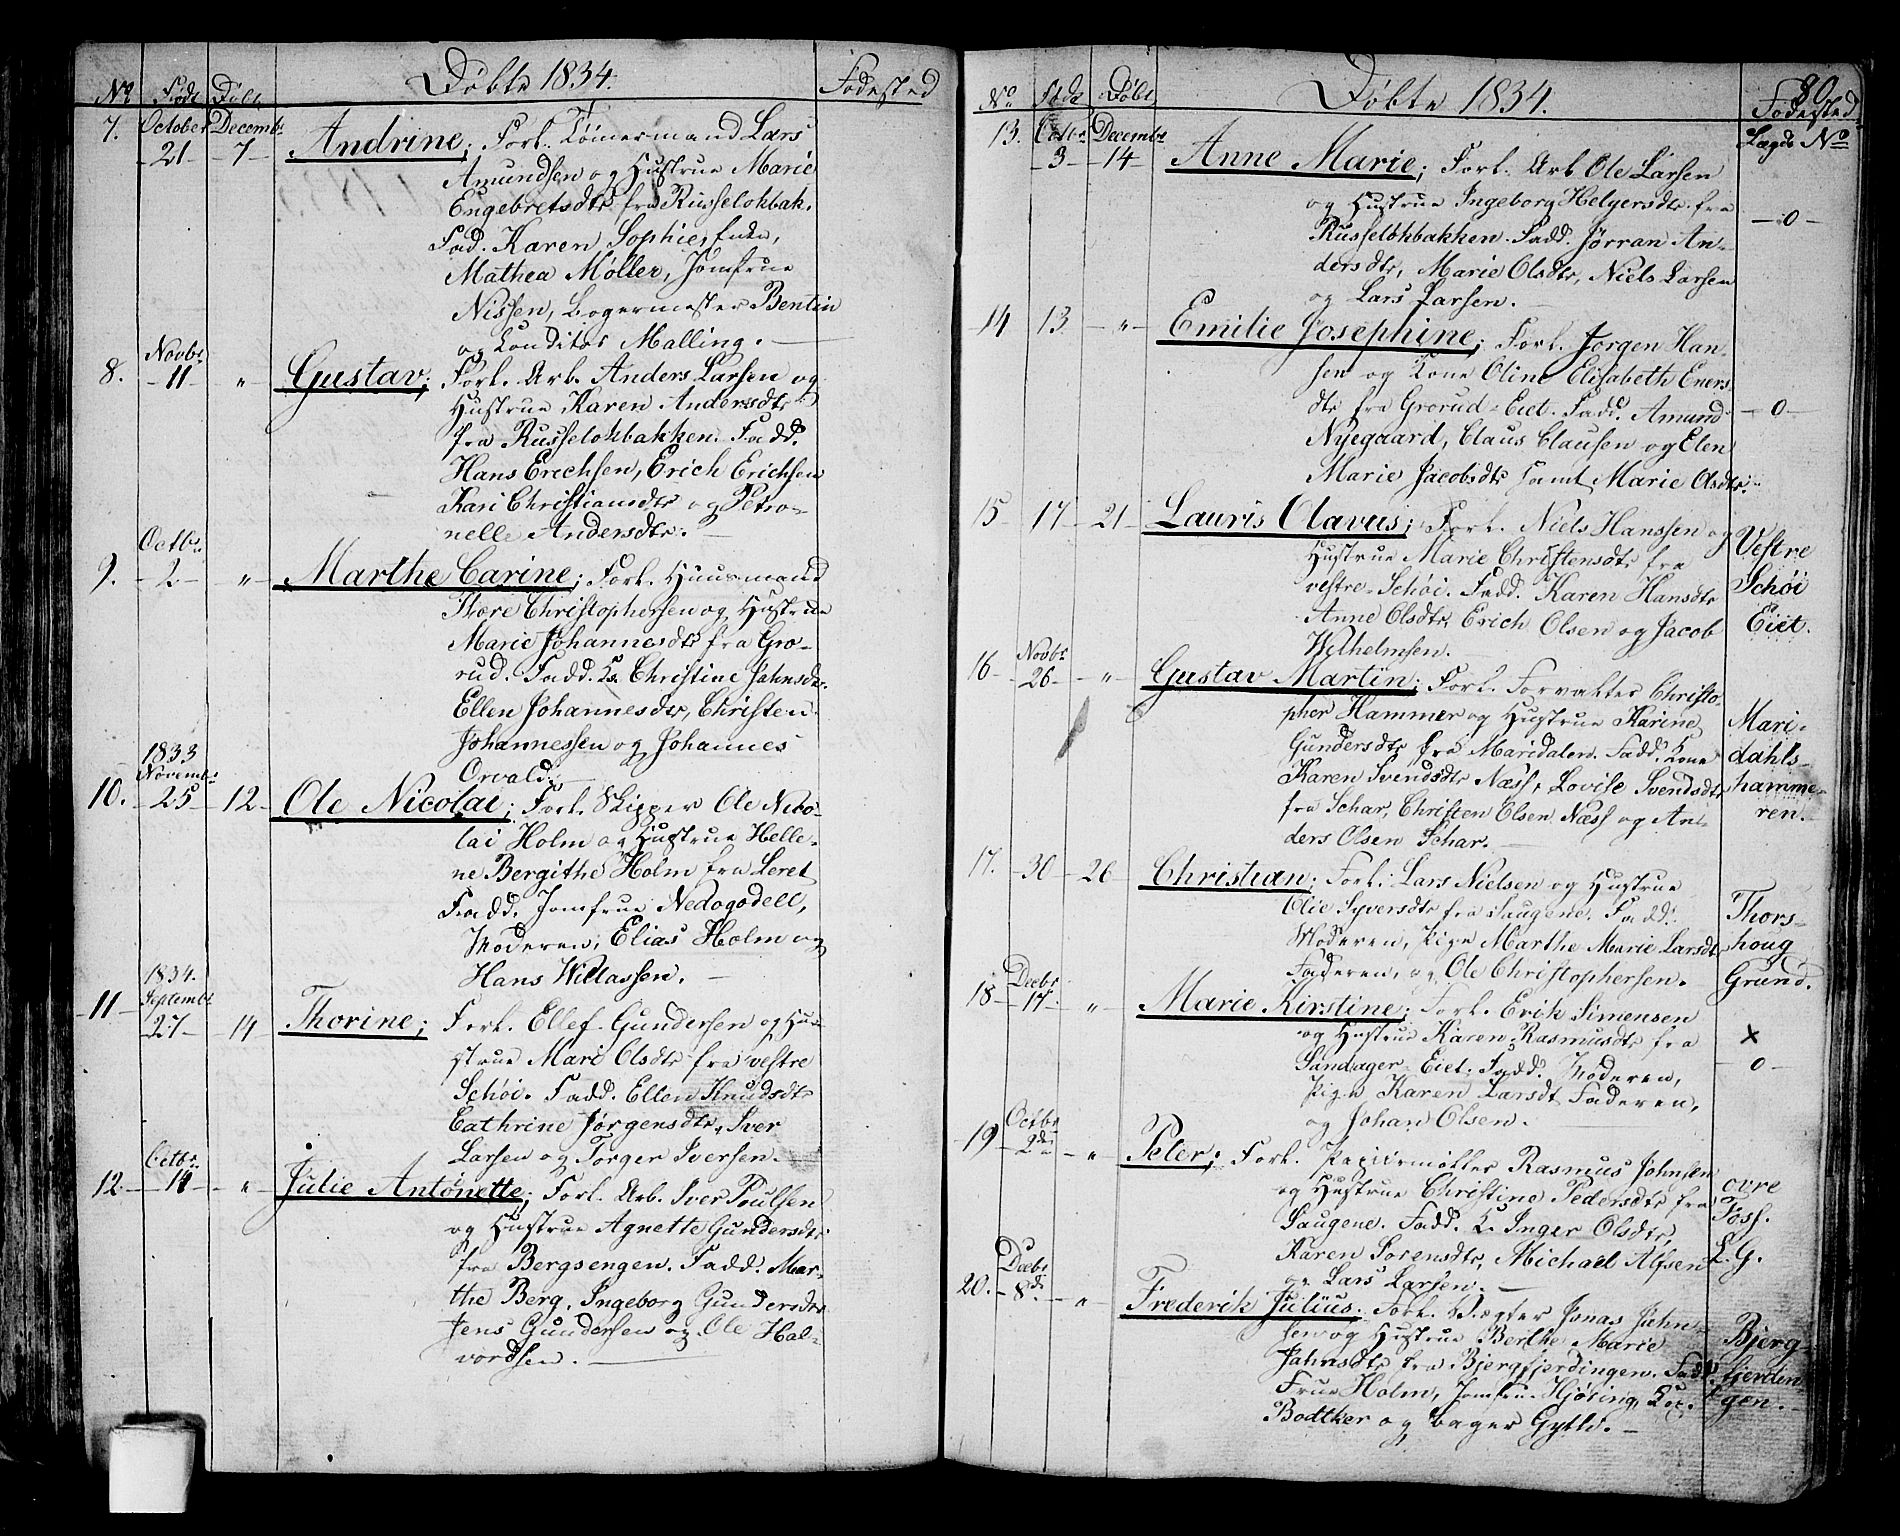 Døbte 1834.
Fødested
No Født Døbt
7. October Decembr
21 - 7 - Andrine; Forl. Tömermand Lars
Amundsen og Hustrue Marie
Engebretsdtr fra Russeløkbak.
Fad. Karen Sophie, Enke,
Mathea Møller, Jomfrue
Nissen, Bogermester Bentin
og Conditor Malling.
Novbr
8. - 11 - " Gustav; Forl. Arb. Anders Larsen og
Hustrue Karen Andersdtr
fra Russeløkbakken. Fadd.
Hans Erichsen, Erich Erichsen
Kari Christiansdtr og Petro-
nelle Andersdtr. -
Octbr.
9. - 2 - " - Marthe Carine; Forl. Huusmand
Thore Christophersen og Hustrue
Marie Johannesdtr fra Gro-
rud. Fadd. K. Christine Jahnsdtr.
Ellen Johannesdtr, Christen
Johannessen og Johannes
Orvald.
1833
Novembr
10. - 25 - 12 - Ole Nicolai; Forl. Skipper Ole Nico-
lai Holm og Hustrue Helle-
ne Bergithe Holm fra Leret
Fadd. Jomfrue Nedogodell,
Moderen, Elias Holm og
Hans Willassen. -
1834.
Septembr
11 - 27 - 14 - Thorine; Forl. Ellef Gundersen og Hu-
strue Mari Olsdtr fra vestre
Schøi. Fadd. Ellen Knudsdtr
Cathrine Jørgensdtr, Iver
Larsen og Torger Iversen.
Octbr.
12. - 14 - " Julie Antonette; Forl. Arb. Iver Poulsen
og Hustrue Agnette Gundersdtr
fra Bergsengen. Fadd. Mar-
the Berg, Ingeborg Gundersdtr
Jens Gundersen og Ole Hal-
vordsen.
80.
Døbte 1834.
Fødested
No Født Døbt
Lægds No
13. Octbr Decembr
3 - 14 - Anne Marie; Forl. Arb Ole Larsen
og Hustrue Ingeborg Helgersdtr fra
Russeløkbakken. Fadd. Jørran An-
dersdtr, Marie Olsdtr, Niels Larsen
og Lars Larsen.
- 0 -
14 13 - " - Emilie Josephine; Forl. Jørgen Han-
sen og Kone Oline Elisabeth Eners
dtr fra Grorud-Eiet. Fadd. Amund
Nyegaard, Claus Clausen og Elen
Marie Jacobsdtr samt Marie Olsdtr.
- 0 -
15 - 17 - 21 - Lauris Olavus; Forl. Niels Hanssen og
Hustrue Marie Christensdtr fra
vestre-Schøi. Fadd. Karen Hansdtr
Anne Olsdtr, Erich Olsen og Jacob
Wilhelmsen.
Vestre
Schøi
Eiet.
Novbr
16 - 26 - - " - Gustav Martin; Forl. Forvalter Christo-
pher Hammer og Hustrue Karine
Gundersdtr fra Maridalen. Fadd. Kone
Karen Svendsdtr Næss, Lovise Svendsdtr
fra Schar, Christen Olsen Næss og An-
ders Olsen Schar. -
Mari-
dahls-
hamme-
ren.
17. - 30 - 26 - Christian; Forl. Lars Nielsen og Hustrue
Olie Syversdtr fra Saugene. Fadd.
Moderen, Pige Marthe Marie Larsdtr
Faderen, og Ole Christophersen.
Thors-
houg
Grund.
Decbr
18 - 17 - " - Marie Kirstine; Forl. Erik Simensen
og Hustrue Karen Rasmusdtr fra
Sandager-Eiet. Fadd. Moderen,
Pige Karen Larsdt Faderen,
og Johan Olsen.
x
- 0 -
Octbr
19 - 2de - " - Peter; Forl. Papiirmøller Rasmus Johnsen
og Hustrue Christine Pedersdtr fra
Saugene. Fadd. K. Inger Olsdtr,
Karen Sorensdtr, Michael Alfsen
og Lars Larsen.
øvre
Foss.
L. G.
Decbr
20. - 8de - - " - Frederik Julius; Forl. Vægter Jonas Jahn-
sen og Hustrue Berthe Marie
Jahnsdtr fra Bjergfjerdingen. Fadd.
Frue Holm, Jomfru Hjøring,
Bødtker og bager Gylli. -
Bjerg-
fjerdin
gen.